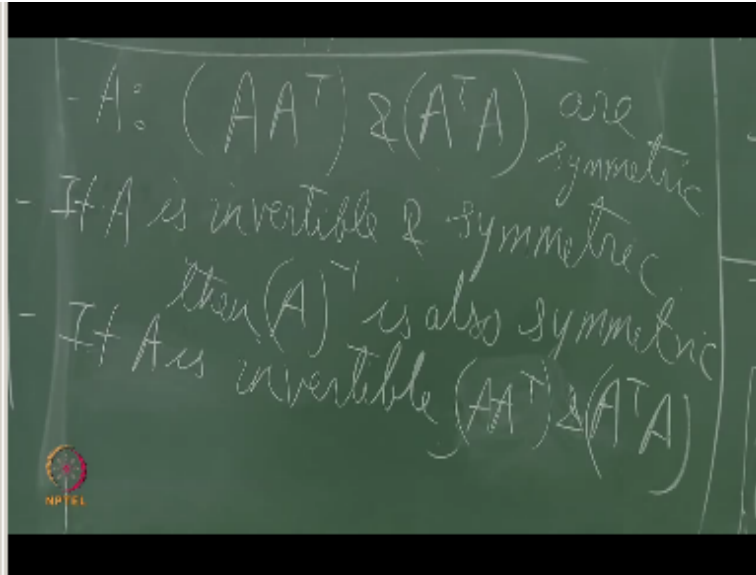 - A: (AAᵀ) & (AᵀA) are
symmetric
- If A is invertible & symmetric
then (A)⁻¹ is also symmetric
- If A is invertible, (AAᵀ) & (AᵀA)
NPTEL